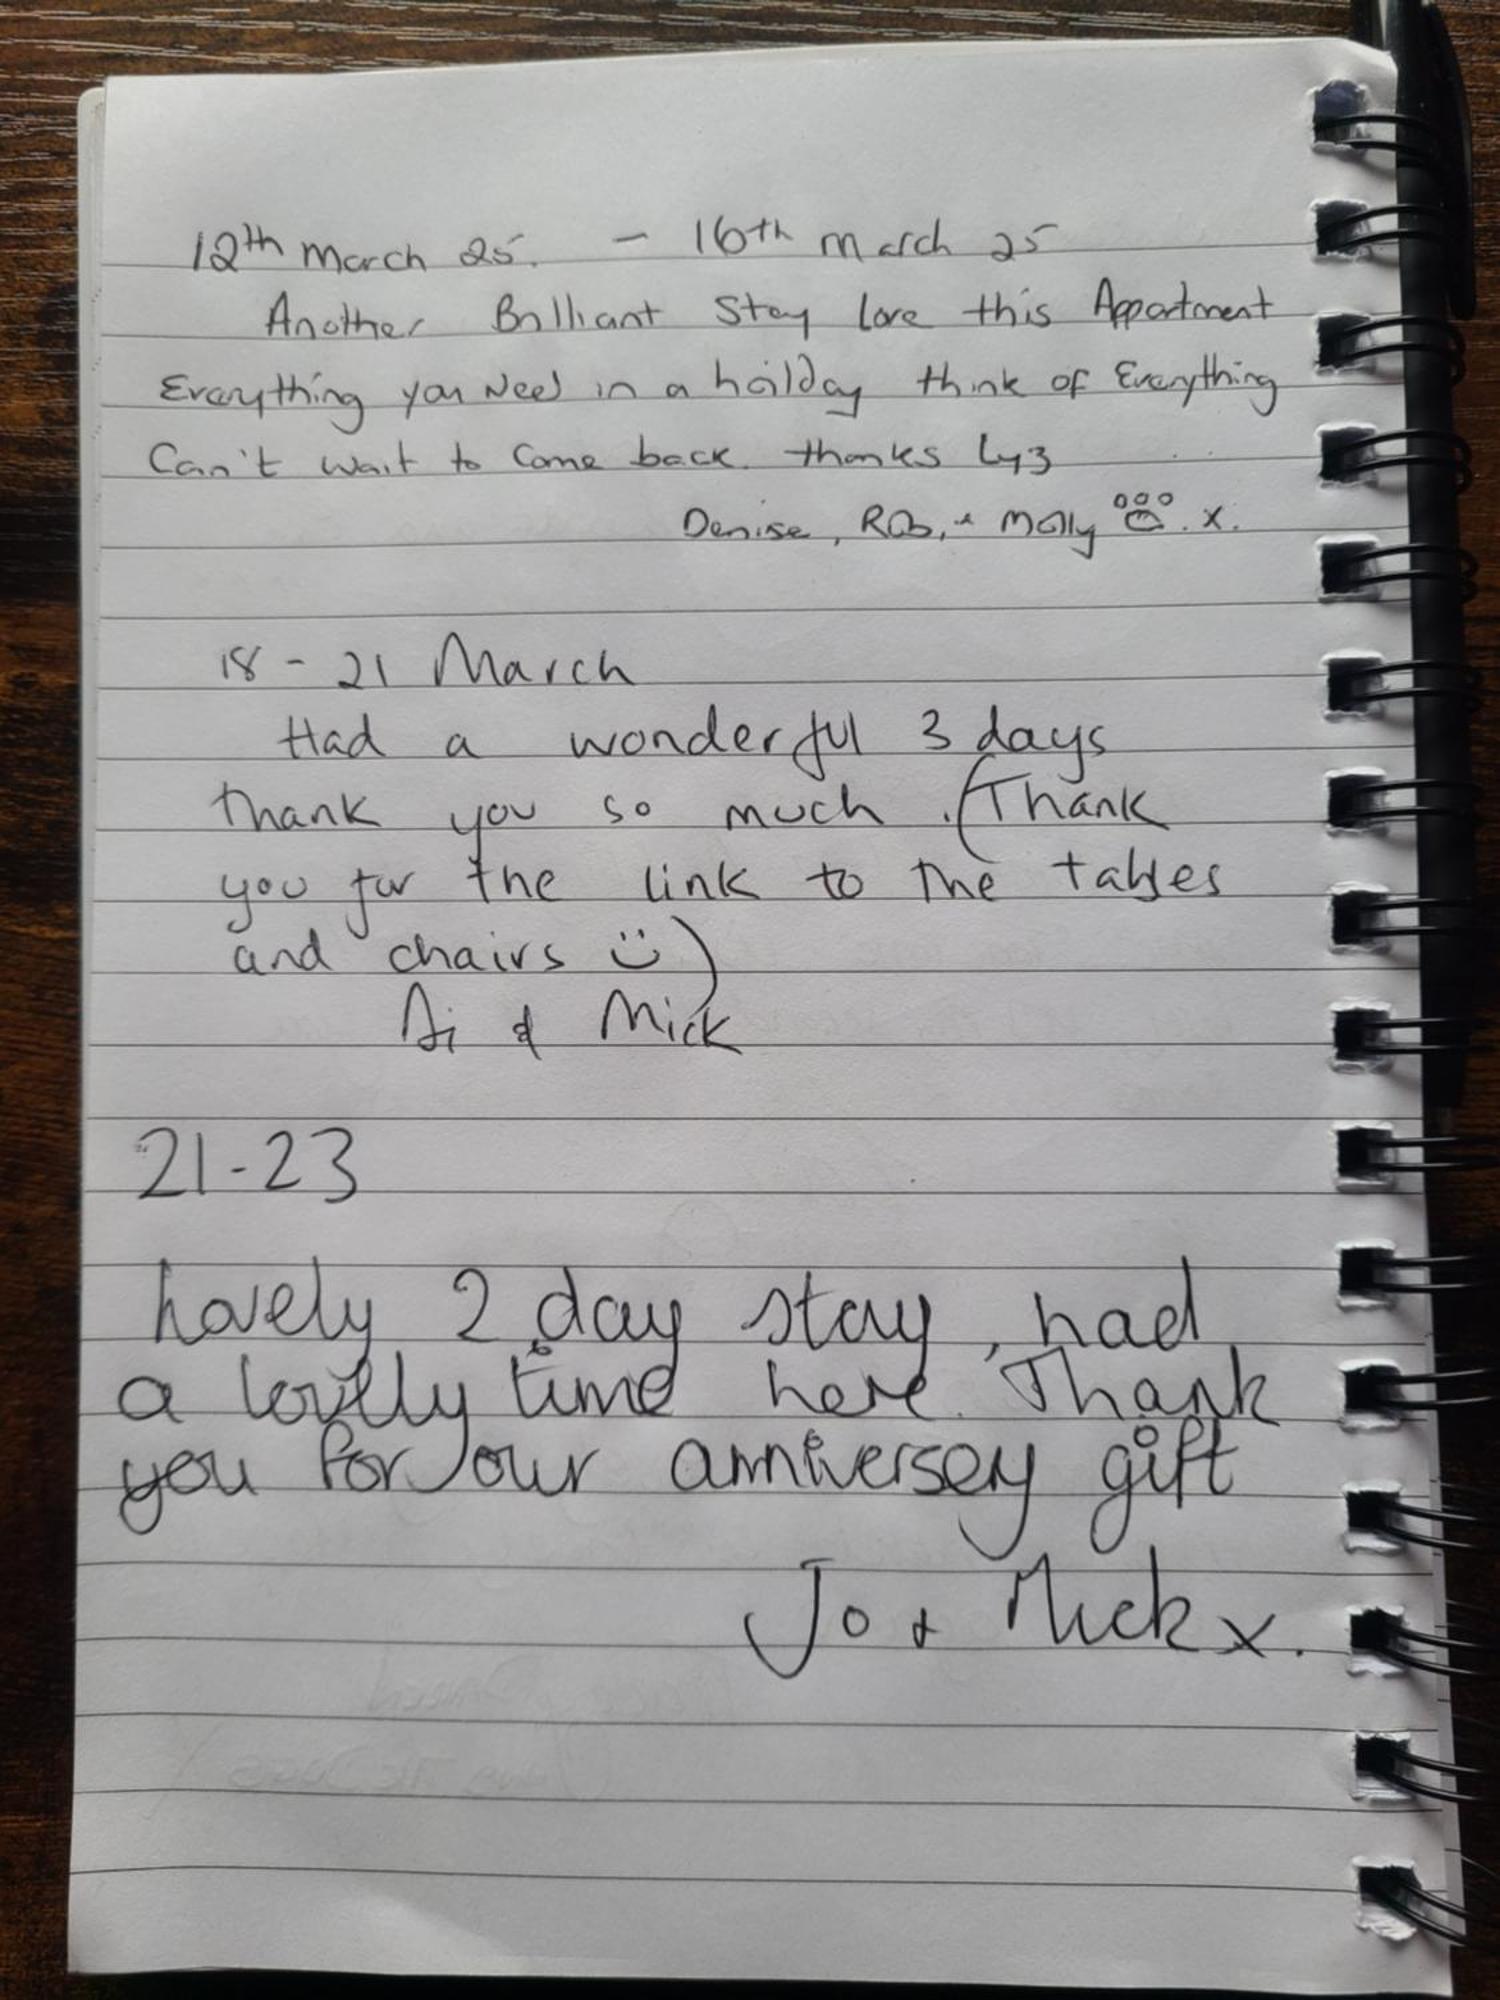 12th March 25. - 16th March 25
Another Brilliant Stay Love this Appartment
Everything you Need in a hoilday think of Everything
Can't wait to Come back. thanks
Denise, Rob, + Molly . x.
18 - 21 March
Had a wonderful 3 days
thank you so much. (Thank
you for the link to the tables
and chairs ☺)
& Mick
21-23
Lovely 2 day stay, had
a lovely time here. Thank
you for our anniversey gift
Jo + Mick x.